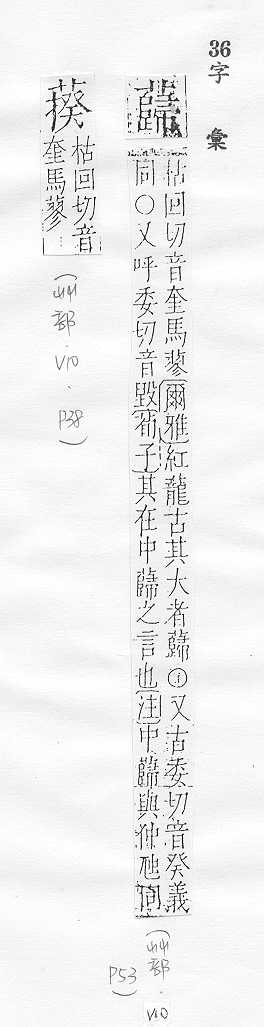 36字彙
蘬
枯回切音奎馬蓼爾雅紅龍古其大者蘬○又古委切音癸義
同○又呼委切音毀荀子其在中蘬之言也注中蘬與仲虺同
(艸部.V10
P53)
葵
枯回切音
奎馬蓼…
(艸部.V10.P38)